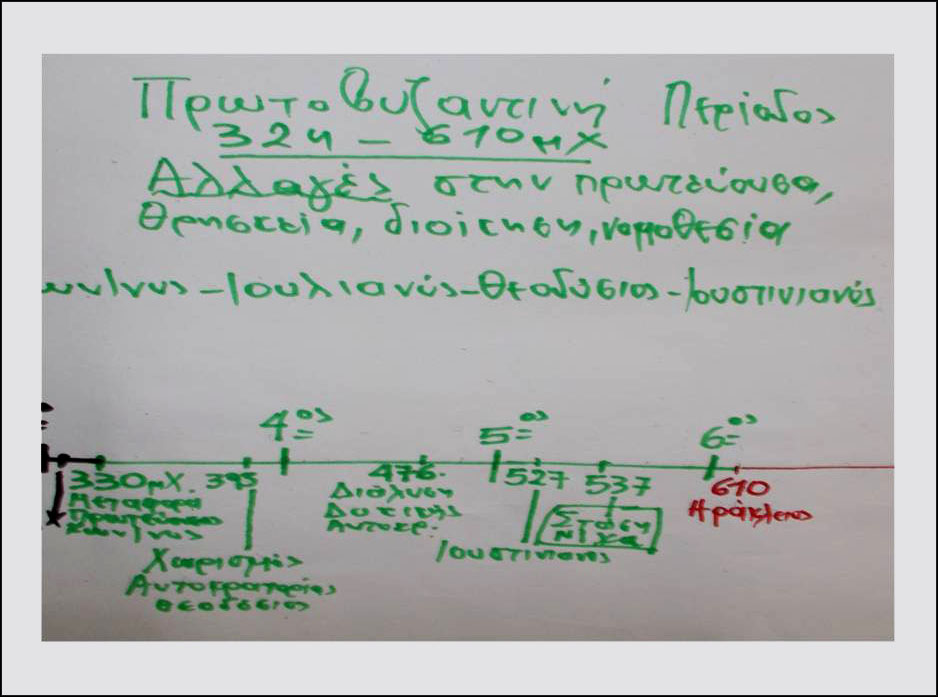 Πρωτοβυζαντινή Περίοδος
324 – 610 μΧ
Αλλαγές στην πρωτεύουσα,
Θρησκεία, διοίκηση, νομοθεσία
Ιουλιανός – Θεοδόσιος – Ιουστινιανός
4ος 5ος 6ος
330 μΧ. 395 476 527 537 610
Μεταφορά
Κων/νος
Χωρισμός
Αυτοκρατορίας
Θεοδόσιος
Διάλυση
Δυτικής
Αυτοκρ.
Ιουστινιανός
Στάση
Νίκα
Ηράκλειος